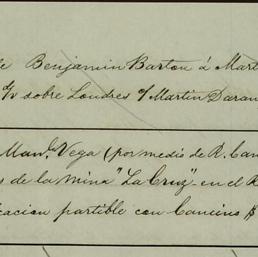 de Benjamin Barton á Mart
d/v sobre Londres c/ Martin Daran
Man.l Vega (por medio de R. Can
s de la mina "La Cruz" en el R
icacion partible con Cancino $